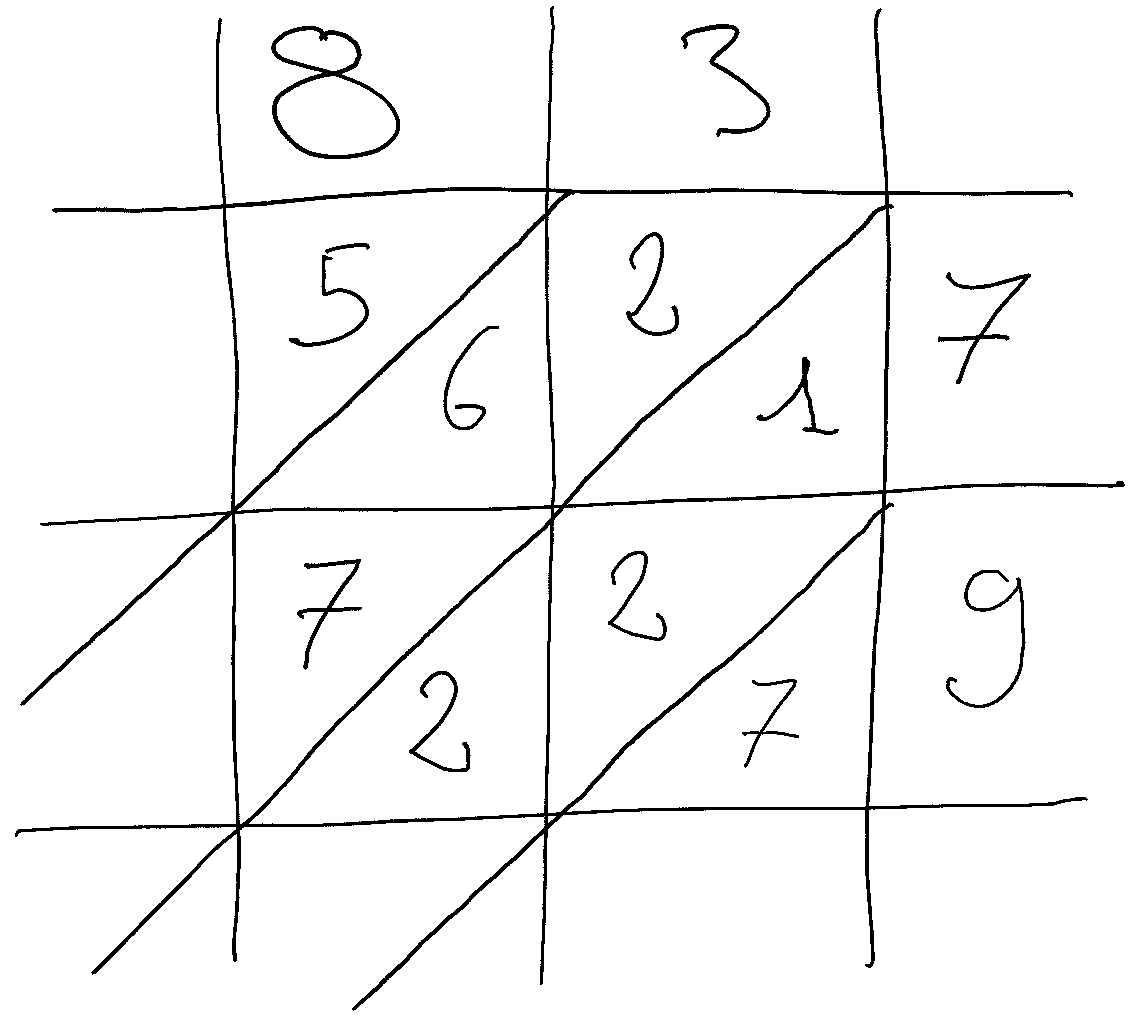 8 3
5 6 2 1 7
7 2 2 7 9